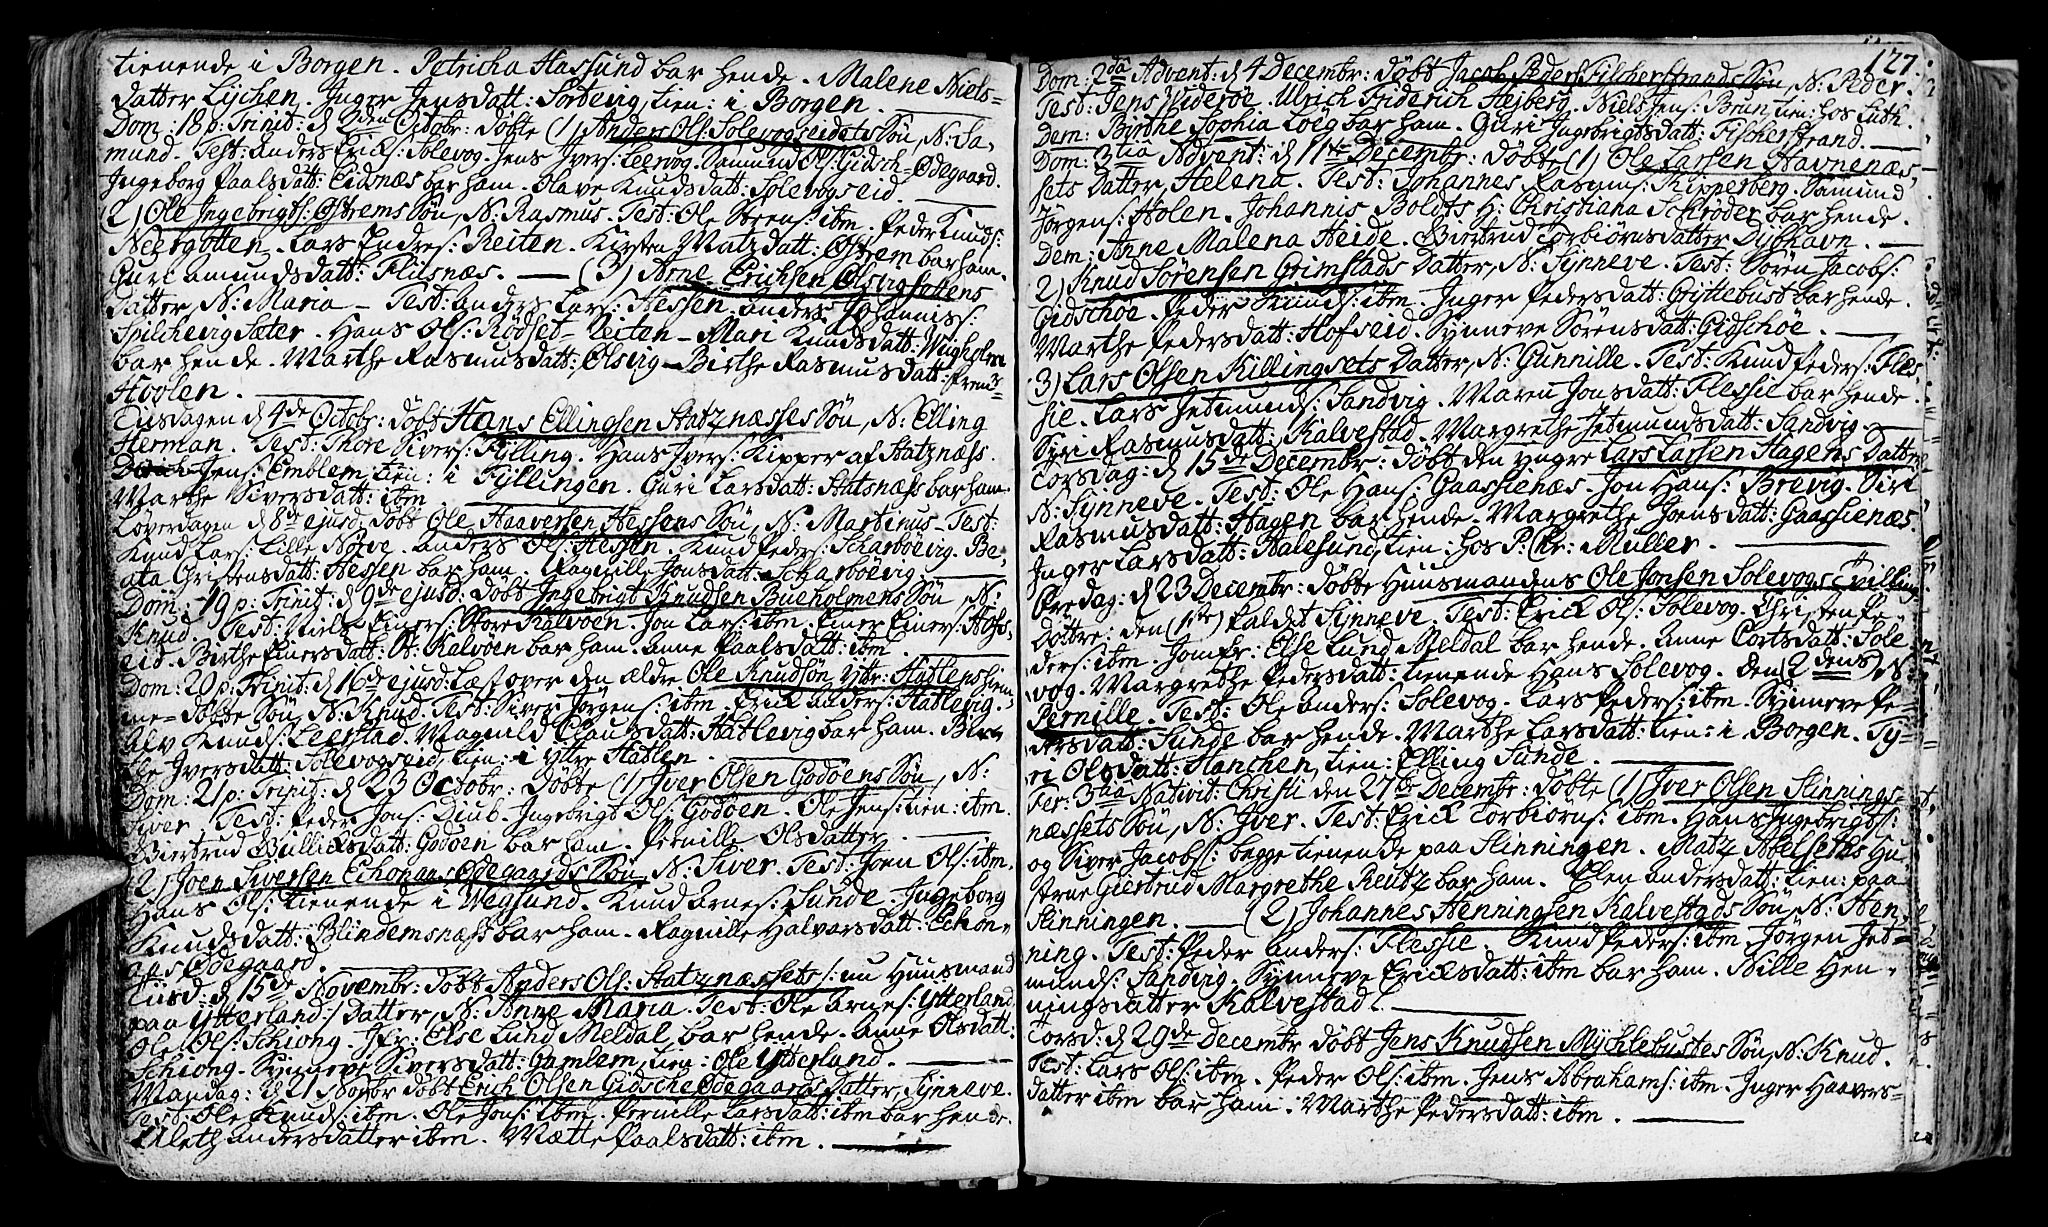 tienende i Borgen. Petricha Hassund bar hende. Malene Niels=
datter Lijchen. Inger Jensdatt: Sortevig, tien: i Borgen.
Dom: 18 p: Trinit: d 2den Octobr: døbte (1) Anders Ols: Solevogseidets Søn, N: Sa,
mund. Test: anders Ericks: Solevog. Jens Ivers: Leervog. Samund Ols: Gidsch=Ødegaard.
Ingeborg Paalsdatt: Eidsnæs bar ham. Olave Knudsdatt: Solevogseid.
(2) Ole Ingebrigts: Østrems Søn, N: Rasmus. Test: Ole Steens: ibm. Peder Knuds:
Neergotten. Lars Endres: Reiten. Kirsten Matzdatt: Østrem bar ham.
Guri amundsdatt: Flisnæs. (3) Arne Erichsen Olsvigsettens
Datter, N: Maria. Test: anders Lars: Hessen. anders Johanness:
Spilchevigsæter. Hans Ols: Rødset=Reiten. Mari Knudsdatt: Wigholen
bar hende. Marthe Rasmusdatt: Olsvig. Birthe Rasmusdatt:
Hoolen.
Tiisdagen d 4de Octobr: døbt Hans Ellingsen Hatznæsses Søn, N: Elling
Herman. Test: Thore Sivers: Fylling. Hans Ivers: Kipper af Hatznæss.
Jens: Emblem, tien: i Fyllingen. Guri Larsdatt: Hatsnæss bar ham.
Marthe Siversdatt: ibm.
Løverdagen d 8de ejusd: døbt Ole Haaversen Hessens Søn, N: Martinus. Test:
Knud Lars: Lille Nørve. anders Ols: Hessen. Knud Peders: Scharbøevig. Be,
ata Christensdatt: Hessen bar ham. Ragnille Jonsdatt: Scharbøevig.
Dom: 19 p: Trinit: d 9de ejusd: døbt Ingebrigt Knudsen Bueholmens Søn, N:
Knud. Test: Niels Einers: Store Kalvøen. Jon Lars: ibm. Einer Einers: Hofs,
eid. Birthe Einersdatt: St: Kalvøen bar ham. anne Paalsdatt: ibm.
Dom: 20 p: Trinit: d 16de ejusd: Læst over den ældre Ole Knudsøn Yttr: Hatlens hiem
me=døbte Søn, N: Knud. Test: Siver Jørgens: ibm. Erick anders: Hatlevig.
Alv Knuds: Leerstad. Magnild Clausdatt: Hatlevig bar ham. Bir=
the Iversdatt: Solevogseid, tien: i Yttre Hatlen.
Dom: 21 p: Trinit: d 23 Octobr: døbte (1) Iver Olsen Godøens Søn, N:
Siver. Test: Peder Jons: Diub. Ingebrigt Ols: Godøen. Ole Jens: tien: ibm.
Giertrud Bullicksdatt: Godøen bar ham. Pernille Olsdatter.
(2) Joen Siversen Echonaas Ødegaards Søn, N: Siver. Test: Joen Ols: ibm.
Hans Ols: tienende i Wegsund. Knud arnes: Sunde. Ingeborg
Knudsdatt: Blindemsnæss bar ham. Ragnille Halvarsdatt: Echon=
aas Ødegaard.
Tiisd: d 15de Novembr: døbt Anders Ols: Hatznæssets /: nu Huusmand
paa Ytterland :/ datter, N: Anne Maria. Test: Ole arnes: Ytterland.
Ole Ols: Schiong. Jfr: Else Lund Meldal bar hende. anne Olsdatt:
Schiong. Synneve Siversdatt: Gamlem, tien: Ole Ytterland.
Mandag: d 21 Novbr døbt Erich Olsen Gidsche Ødegaards Datter, Synneve.
Test: Ole Knuds: ibm. Ole Jons: ibm. Pernille Larsdatt: ibm bar hende.
Aleth andersdatter ibm. Mætte Paalsdatt: ibm.
127.
Dom: 2da Advent: d 4 Decembr: døbt Jacob Peders: Fischerstrands Søn, N: Peder.
Test: Jens Wideröe. Ulrich Friderich Hejberg. Niels Jens: Brun tien: hos Luth.
Dem: Birthe Sophia Löeg bar ham. Guri Ingebrigtsdatt: Fischerstrand.
Dom: 3tia Advent: d 11te Decembr: døbte (1) Ole Larsen Havnenæs,
sets Datter, Helena. Test: Johannes Rasmus: Kipperberg. Samund
Jørgens: Holen. Johannis Boldts H: Christiana Schrøder bar hende.
Dem: Anne Malena Heide. Giertrud Torbiørnsdatter Dijbhavn.
2) Knud Sørensen Grimstads Datter, N: Synneve. Test: Søren Jacobs:
Gidschöe. Peder Knuds: ibm. Inger Pedersdatt: Gyttebust bar hende.
Marthe Pedersdatt: Hofseid. Synneve Sørensdatt: Gidschöe.
3) Lars Olsen Killingsets Datter, N: Gunnille. Test: Knud Peders: Fles,
sie. Lars Jetmunds: Sandvig. Maren Jonsdatt: Flessie bar hende.
Siri Rasmusdatt: Kalvestad. Margrethe Jetmundsdatt: Sandvig.
Torsdag: d 15de Decembr: døbt den yngre Lars Larsen Hagens Datter
N: Synneve. Test: Ole Hans: Gaassienæs. Jon Hans: Brevig. Siri
Rasmusdatt: Hagen bar hende. Margrethe Joensdatt: Gaassienæs.
Inger Larsdatt: Aalesund, tien: hos P: Chr: Müller.
Fredag: d 23 Decembr: døbte Huusmandens Ole Jonsen Solevogs Tvilling
Døttre: den (1ste) kaldet Synneve. Test: Erick Ols: Solevog. Christen Pe,
ders: ibm. Jomfr: Else Lund Meldal bar hende. anne Cortsdatt: Sole
vog. Margrethe Pedersdatt: tienende Hans Solevog. den 2dens N:
Pernille. Test: Ole anders: Solevog. Lars Peders: ibm. Synneve Pe
dersdatt: Sunde bar hende. Marthe Larsdatt: tien: i Borgen. Sy=
ri Olsdatt: Hanchen, tien: Elling Sunde.
Fer: 3tia Nativit: Christi den 27de Decembr: døbte (1) Iver Olsen Slinnings=
næssets Søn, N: Iver. Test: Erick Torbiørns: ibm. Hans Ingebrigts:
og Siver Jacobs: begge tienende paa Slinningen. Matz Abelseths Hu
strue Giertrud Margrethe Reutz bar ham. Elen andersdatt: tien: paa
Slinningen. (2) Johannes Henningsen Kalvestads Søn, N: Hen,
ning. Test: Peder anders: Flessie. Knud Peders: ibm. Jørgen Jet=
munds: Sandvig. Synneve Ericksdatt: ibm bar ham. Nille Hen,
ningsdatter Kalvestad.
Torsd: d 29de Decembr døbt Jens Knudsen Mychlebustes Søn, N: Knud.
Test: Lars Ols: ibm. Peder Ols: ibm. Jens Abrahams: ibm. Inger Haavers=
datter ibm bar ham. Marthe Pedersdatt: ibm.